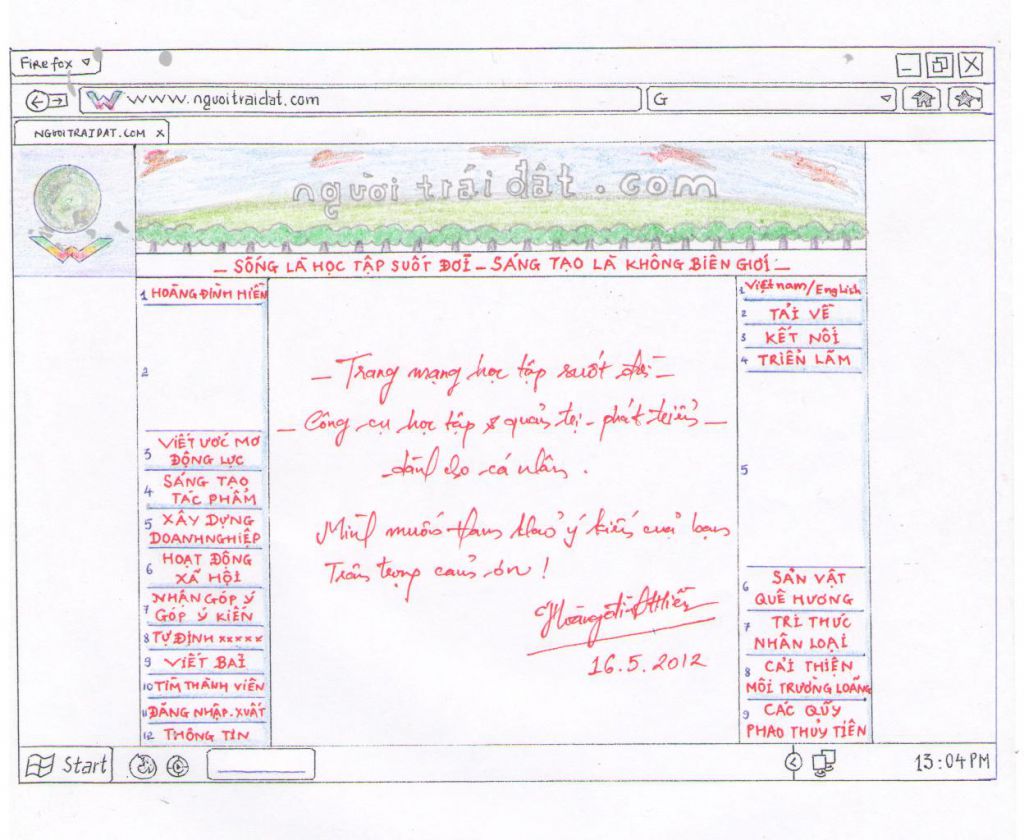 Firefox
www.nguoitraidat.com
G
NGUOITRAIDAT.COM X
người trái đất.com
_ SỐNG LÀ HỌC TẬP SUỐT ĐỜI _ SÁNG TẠO LÀ KHÔNG BIÊN GIỚI _
1 HOÀNG ĐÌNH HIỂN
2
3 VIẾT ƯỚC MƠ
ĐỘNG LỰC
4 SÁNG TẠO
TÁC PHẨM
5 XÂY DỰNG
DOANH NGHIỆP
6 HOẠT ĐỘNG
XÃ HỘI
7 NHẬN GÓP Ý
GÓP Ý KIẾN
8 TỰ ĐỊNH xxxxx
9 VIẾT BÀI
10 TÌM THÀNH VIÊN
11 ĐĂNG NHẬP.XUẤT
12 THÔNG TIN
_ Trang mạng học tập suốt đời _
_ Công cụ học tập & quản trị - phát triển _
dành cho cá nhân.
Mình muốn tham khảo ý kiến của bạn
Trân trọng cảm ơn!
Hoàng Đình Hiển
16.5.2012
1 Việt nam/English
2 TẢI VỀ
3 KẾT NỐI
4 TRIỂN LÃM
5
6 SẢN VẬT
QUÊ HƯƠNG
7 TRI THỨC
NHÂN LOẠI
8 CẢI THIỆN
MÔI TRƯỜNG LOÃNG
9 CÁC QUỸ
PHAO THỦY TIÊN
Start
13:04 PM